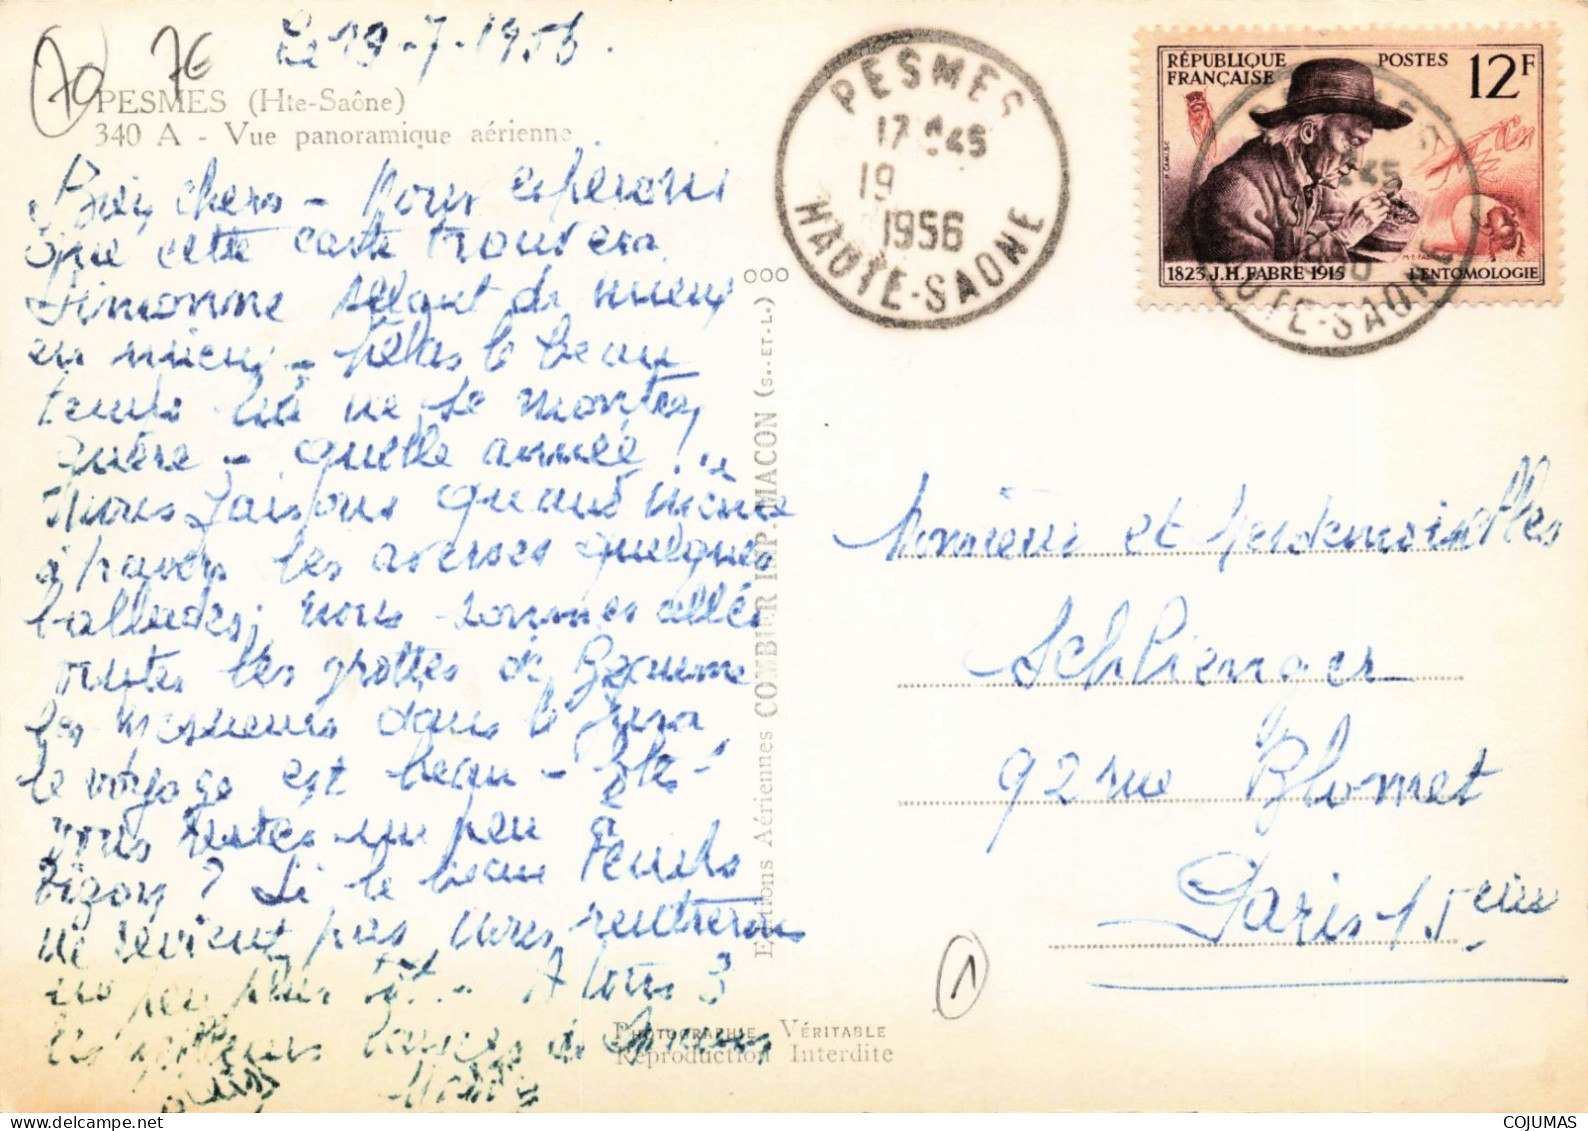 70
7E
Le 19-7-1956.
PESMES (Hte-Saône)
340 A - Vue panoramique aérienne
Bien chers - Nous espérons
que cette carte trouvera
Simonne allant de mieux
en mieux - hélas le beau
temps lui ne se montre
guère - quelle année !..
Nous faisons quand même
à travers les averses quelques
ballades, nous sommes allés
visiter les grottes de Beaume
les messieurs dans le Jura,
le voyage est beau - Etes-
vous restés un peu à
? Si le beau temps
ne revient pas nous rentrerons
un peu plus tôt. - A tous 3
les meilleurs baisers de
PESMES
17 H45
19
1956
HAUTE-SAONE
RÉPUBLIQUE FRANÇAISE
POSTES
12F
1823 J.H.FABRE 1915
L'ENTOMOLOGIE
Editions Aériennes COMBIER IMP. MACON (S.-ET-L.)
Monsieur et Mesdemoiselles
Schlienger
92 rue Blomet
Paris-15ème
1
PHOTOGRAPHIE VÉRITABLE
Reproduction Interdite
COJUMAS